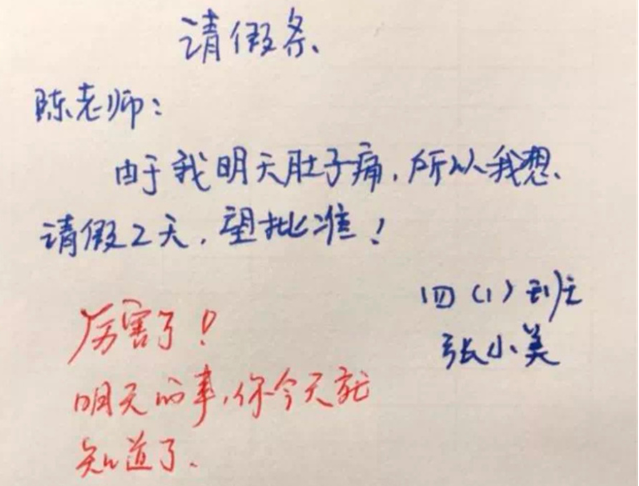 请假条
陈老师：
由于我明天肚子痛，所以我想
请假2天，望批准！
四（1）班
张小美
厉害了！
明天的事，你今天就
知道了.